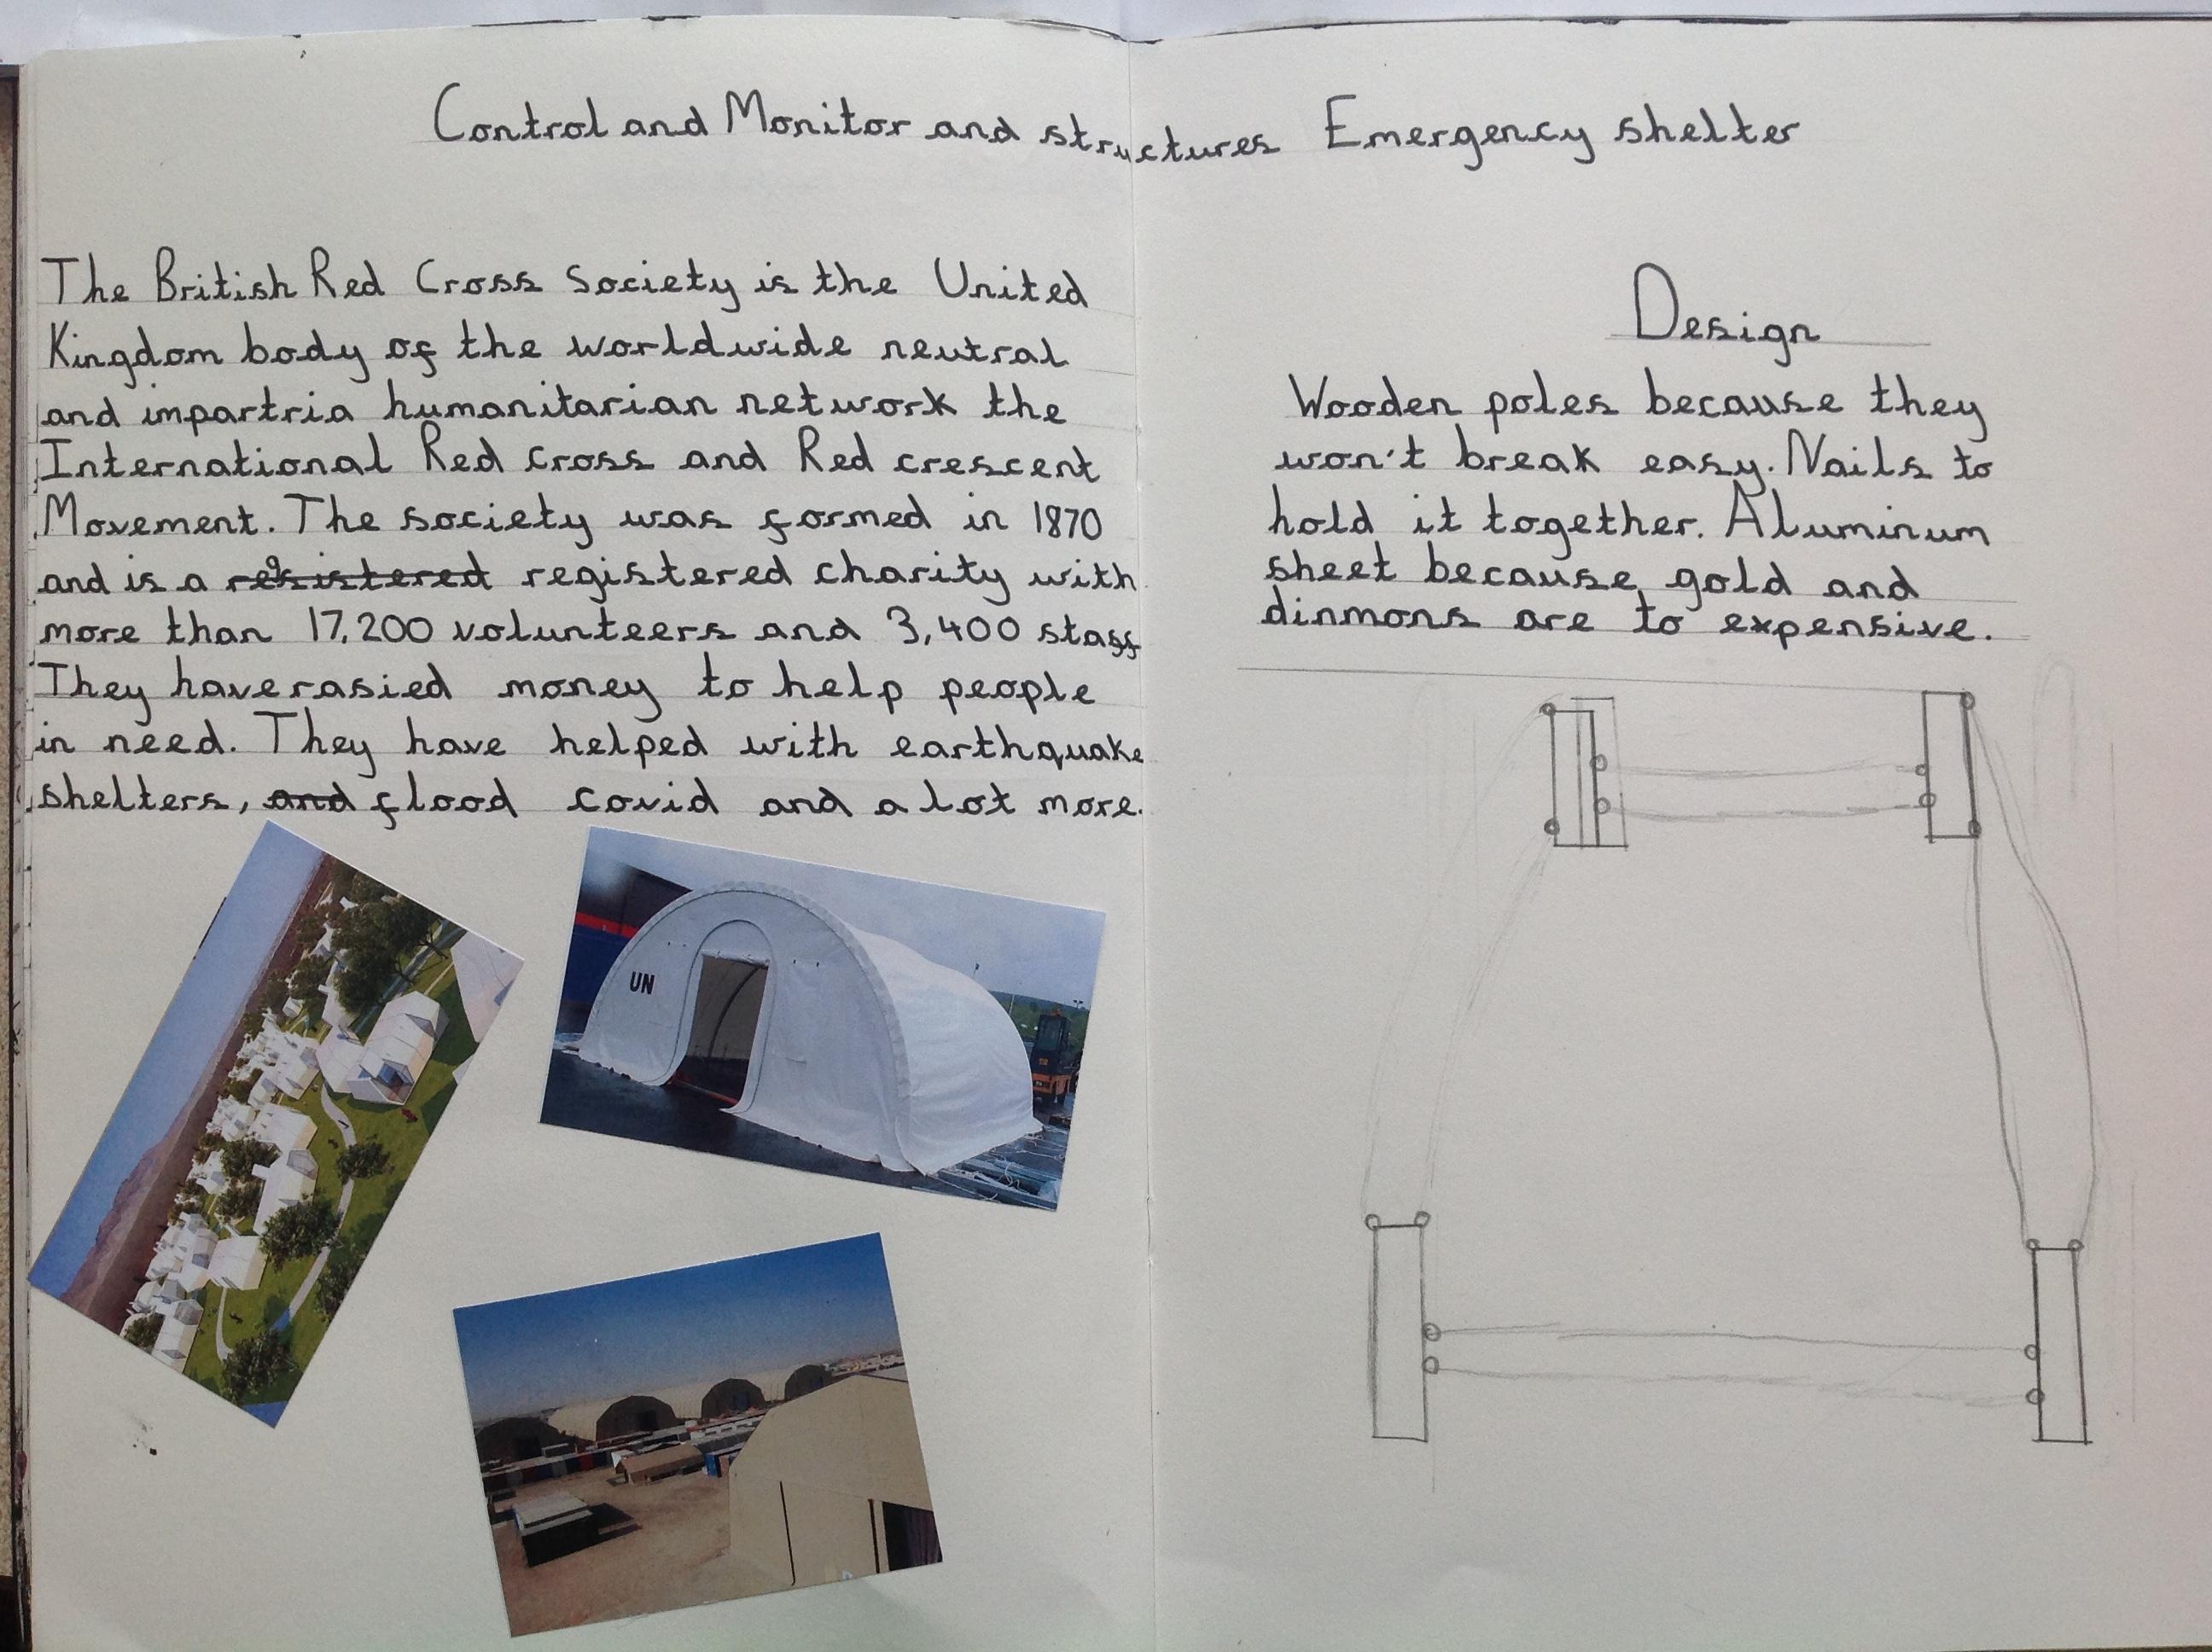 Control and Monitor and structures Emergency shelter
The British Red Cross Society is the United
Kingdom body of the worldwide neutral
and impartria humanitarian network the
International Red Cross and Red crescent
Movement. The society was formed in 1870
and is a registered registered charity with
more than 17,200 volunteers and 3,400 staff
They have rasied money to help people
in need. They have helped with earthquake
shelters, and flood covid and a lot more.
UN
Design
Wooden poles because they
won't break easy. Nails to
hold it together. Aluminum
sheet because gold and
dinmons are to expensive.